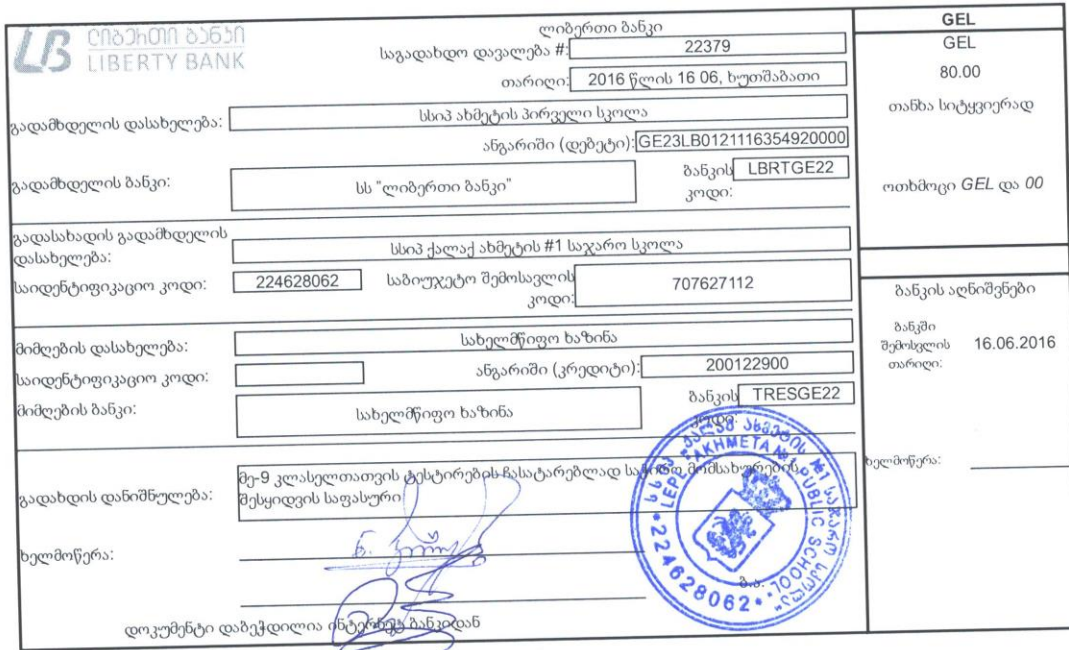 ლიბერთი ბანკი
LIBERTY BANK
ლიბერთი ბანკი
საგადახდო დავალება #: 22379
თარიღი: 2016 წლის 16 06, ხუთშაბათი
გადამხდელის დასახელება: სსიპ ახმეტის პირველი სკოლა
ანგარიში (დებეტი): GE23LB0121116354920000
გადამხდელის ბანკი: სს "ლიბერთი ბანკი" ბანკის კოდი: LBRTGE22
გადასახადის გადამხდელის დასახელება: სსიპ ქალაქ ახმეტის #1 საჯარო სკოლა
საიდენტიფიკაციო კოდი: 224628062 საბიუჯეტო შემოსავლის კოდი: 707627112
მიმღების დასახელება: სახელმწიფო ხაზინა
საიდენტიფიკაციო კოდი: ანგარიში (კრედიტი): 200122900
მიმღების ბანკი: სახელმწიფო ხაზინა ბანკის კოდი: TRESGE22
გადახდის დანიშნულება: მე-9 კლასელთათვის ტესტირების ჩასატარებლად საჭირო მომსახურების
შესყიდვის საფასური
ხელმოწერა:
ბ.ა.
დოკუმენტი დაბეჭდილია ინტერნეტ ბანკიდან
GEL
GEL
80.00
თანხა სიტყვიერად
ოთხმოცი GEL და 00
ბანკის აღნიშვნები
ბანკში
შემოსვლის 16.06.2016
თარიღი:
ხელმოწერა:
სსიპ ქალაქ ახმეტის №1 საჯარო სკოლა
LEPL AKHMETA №1 PUBLIC SCHOOL
224628062